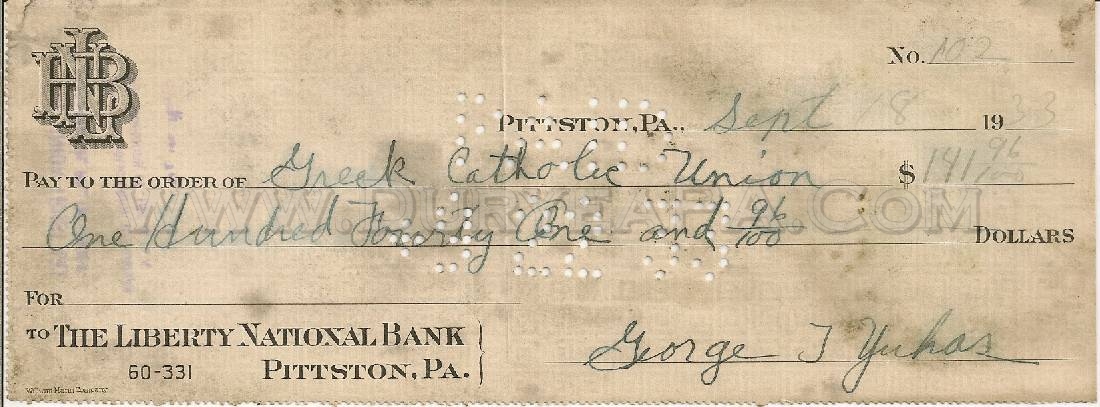 LNB
No. 102
PITTSTON, PA., Sept 18 1933
PAY TO THE ORDER OF Greek Catholic Union $ 141 96/100
WWW.DURYEAPA.COM
One Hundred Fourty One and 96/100 DOLLARS
FOR
TO THE LIBERTY NATIONAL BANK
60-331 PITTSTON, PA.
George J Yuhas